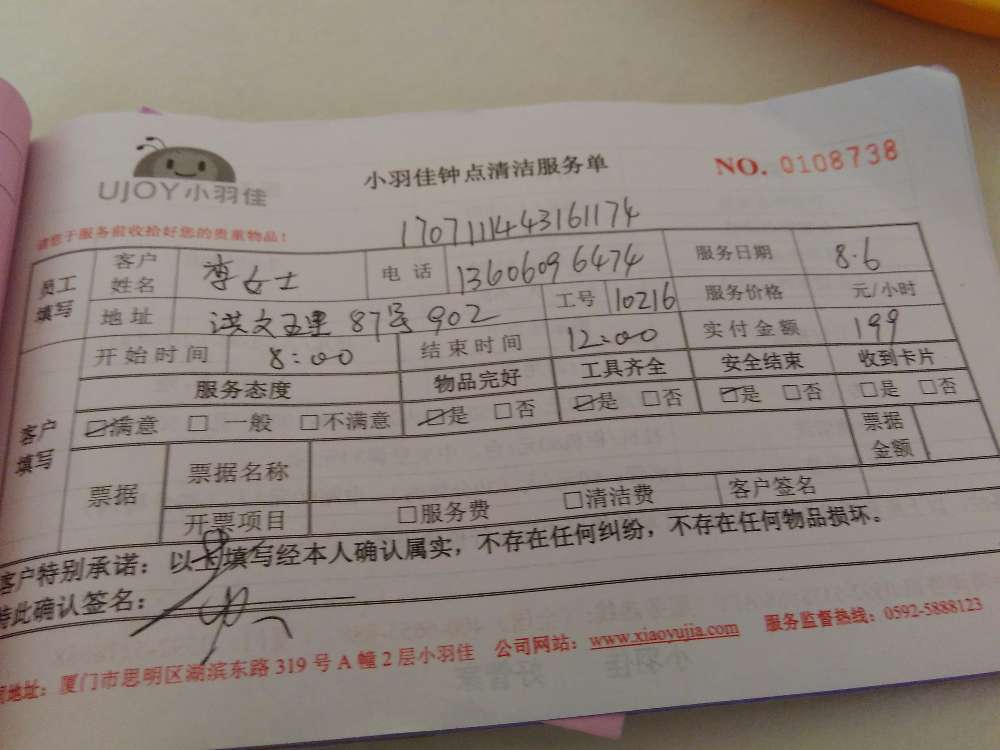 UJOY小羽佳
小羽佳钟点清洁服务单
NO. 0108738
请您于服务前收拾好您的贵重物品！
1707111443161174
员工填写 客户姓名 李女士 电话 13606096474 服务日期 8.6
地址 洪文五里87号902 工号 10216 服务价格 元/小时
开始时间 8:00 结束时间 12:00 实付金额 199
客户填写 服务态度 物品完好 工具齐全 安全结束 收到卡片
☑满意 □一般 □不满意 ☑是 □否 ☑是 □否 ☑是 □否 □是 □否
票据 票据名称 票据金额
开票项目 □服务费 □清洁费 客户签名
客户特别承诺：以上填写经本人确认属实，不存在任何纠纷，不存在任何物品损坏。
特此确认签名：
地址：厦门市思明区湖滨东路319号A幢2层小羽佳 公司网站：www.xiaoyujia.com 服务监督热线：0592-5888123